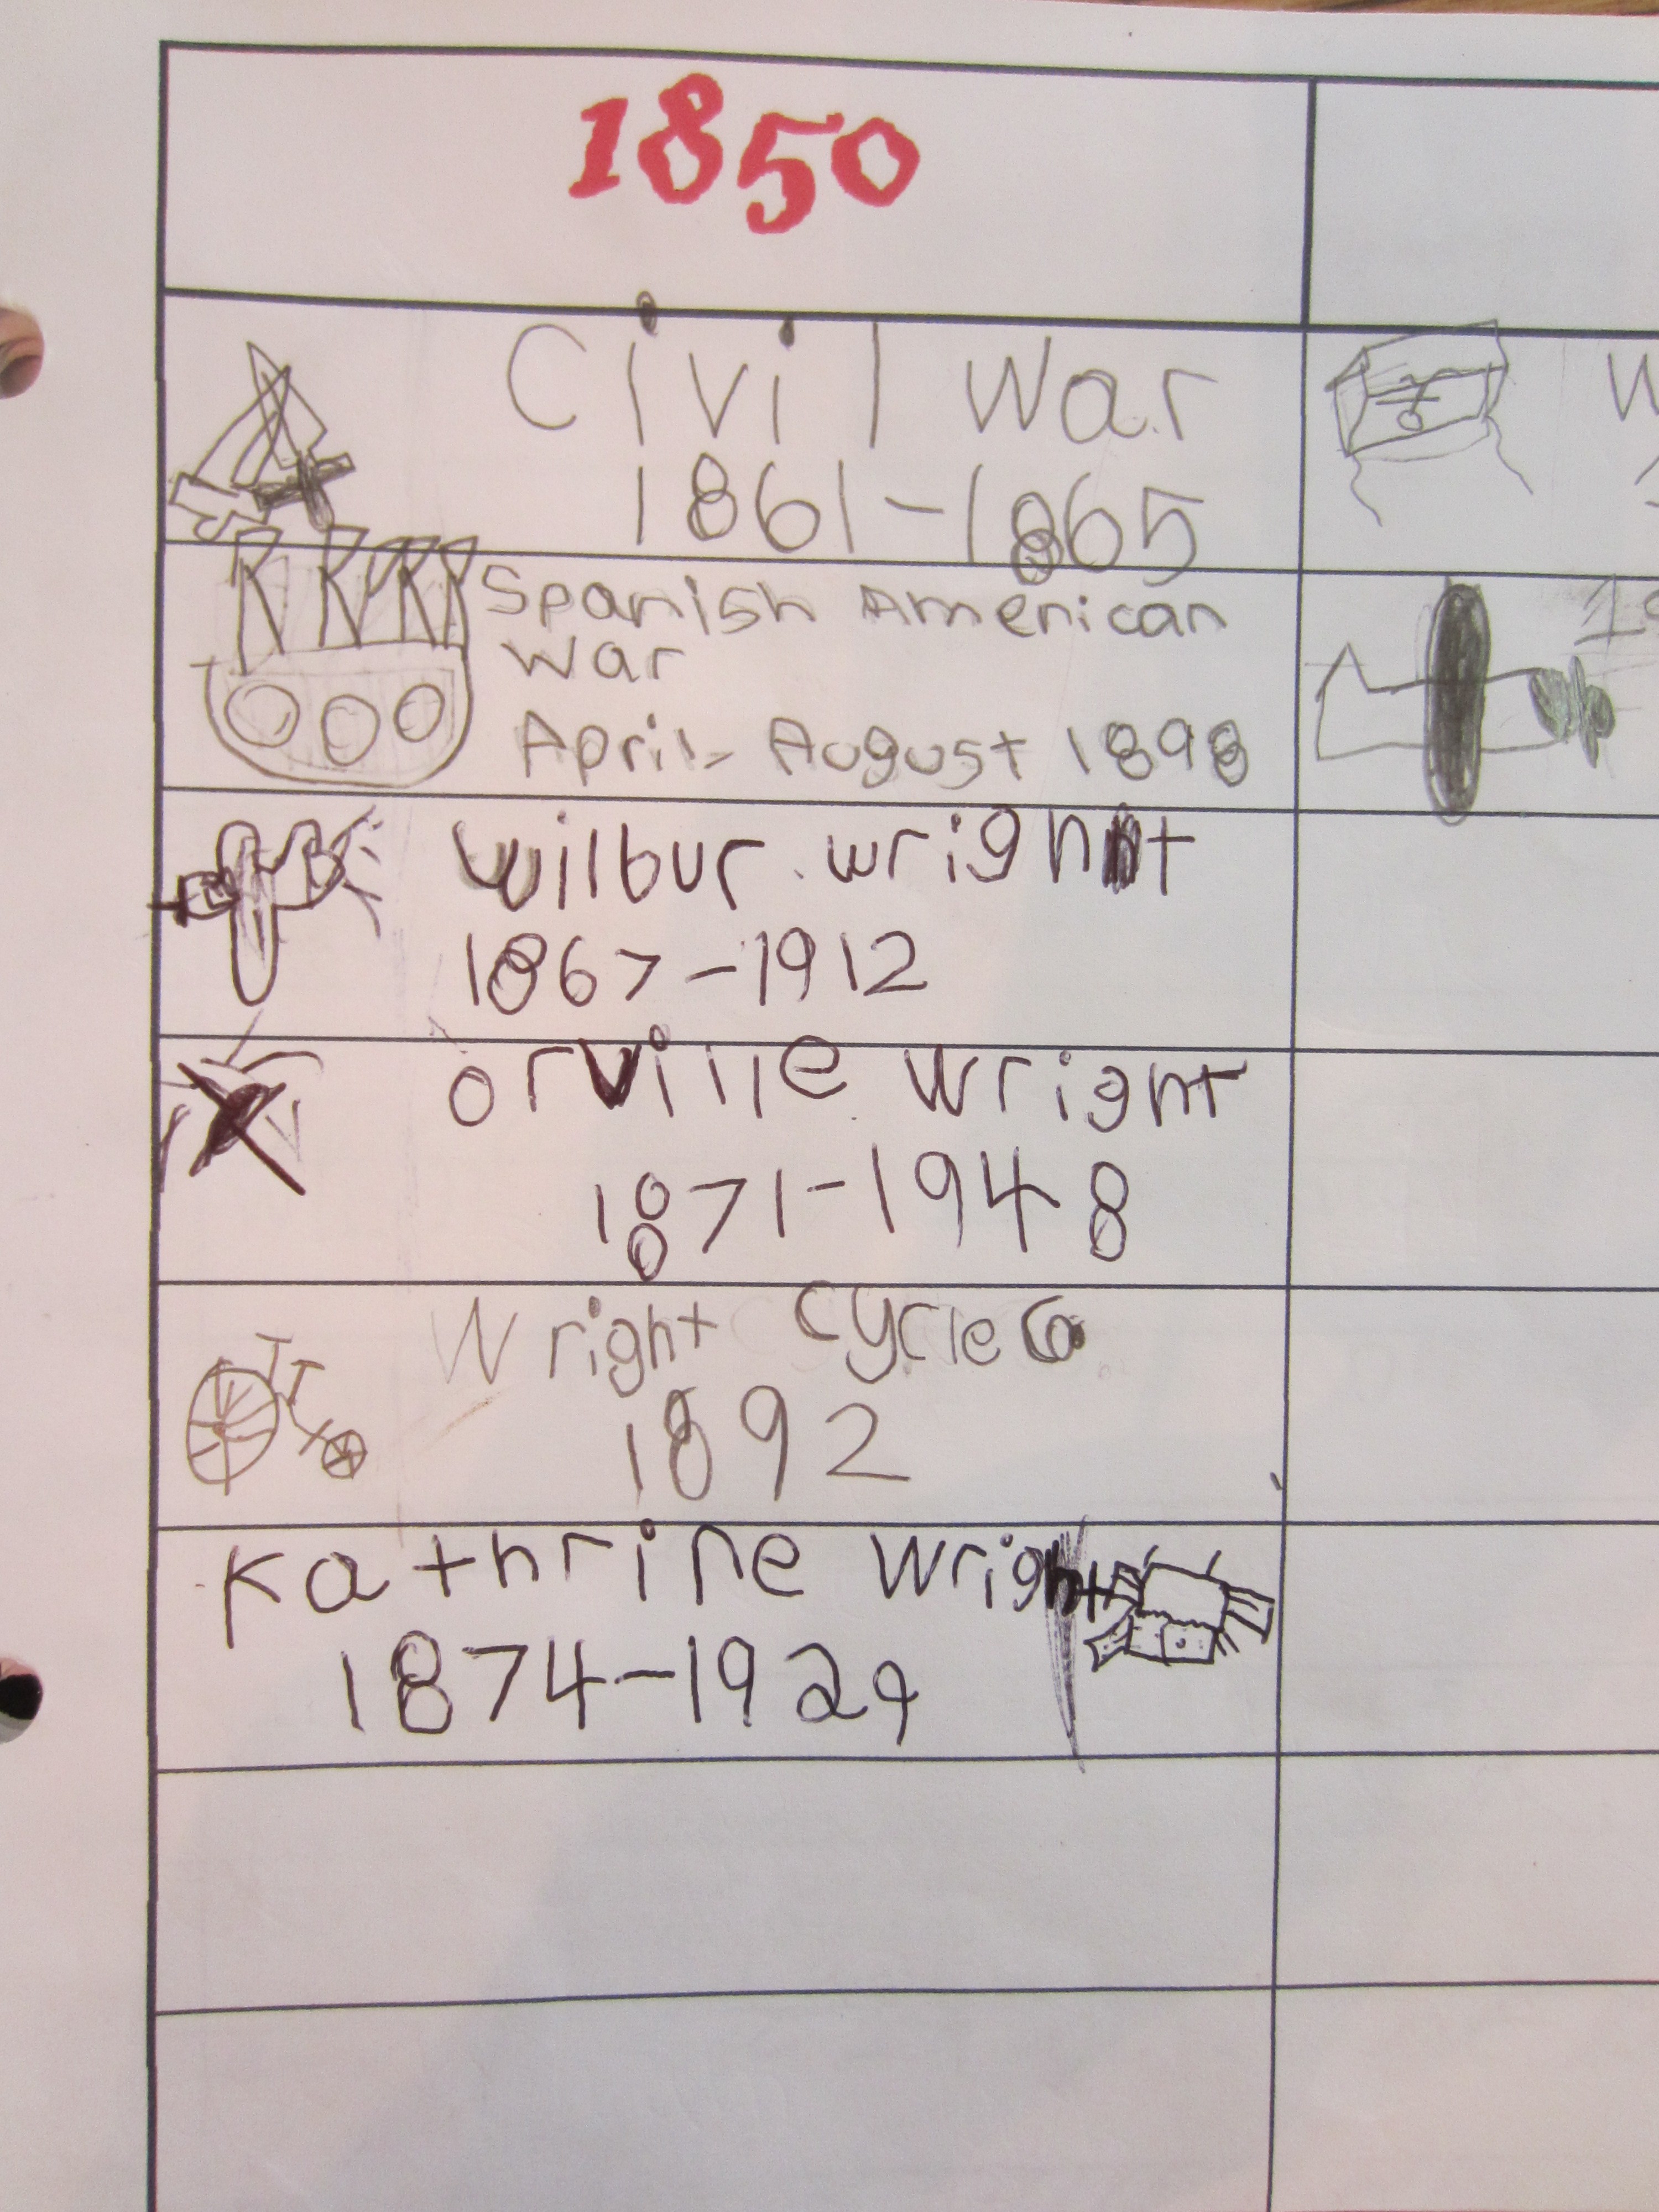 1850
Civil War
1861-1865
Spanish American
War
April- August 1898
wilbur wright
1867-1912
orville wright
1871-1948
Wright Cycle Co
1892
Kathrine Wright
1874-1929
W
19